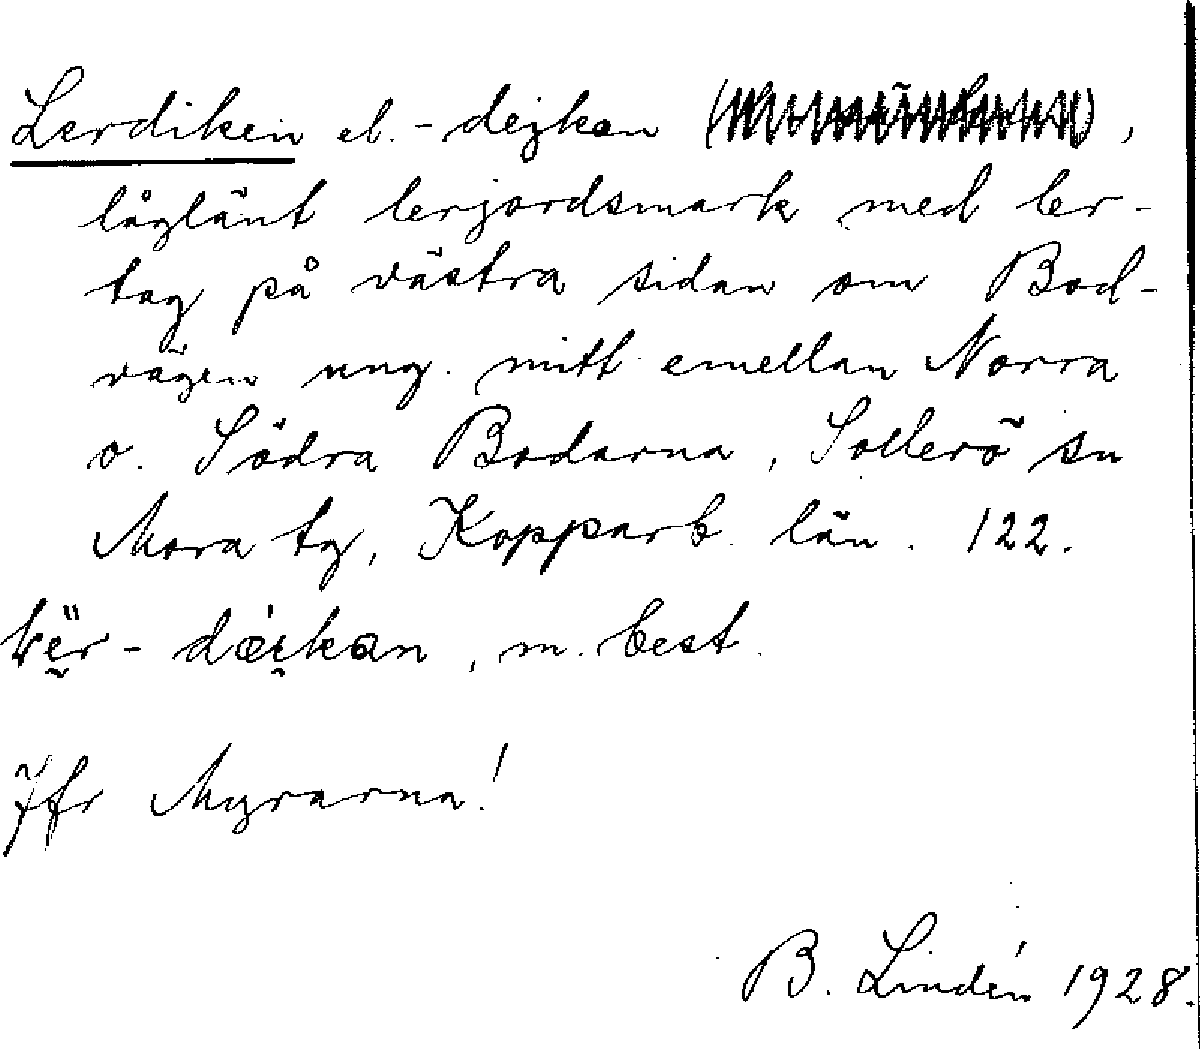 Lerdiken el. -dejkan ,
låglänt lerjordsmark med ler-
tag på västra sidan om Bod-
vägen ung. mitt emellan Norra
o. Södra Bodarna, Sollerö sn
Mora tg, Kopparb. län. 122.
, m. best.
Jfr Myrarna!
B. Lindén 1928.